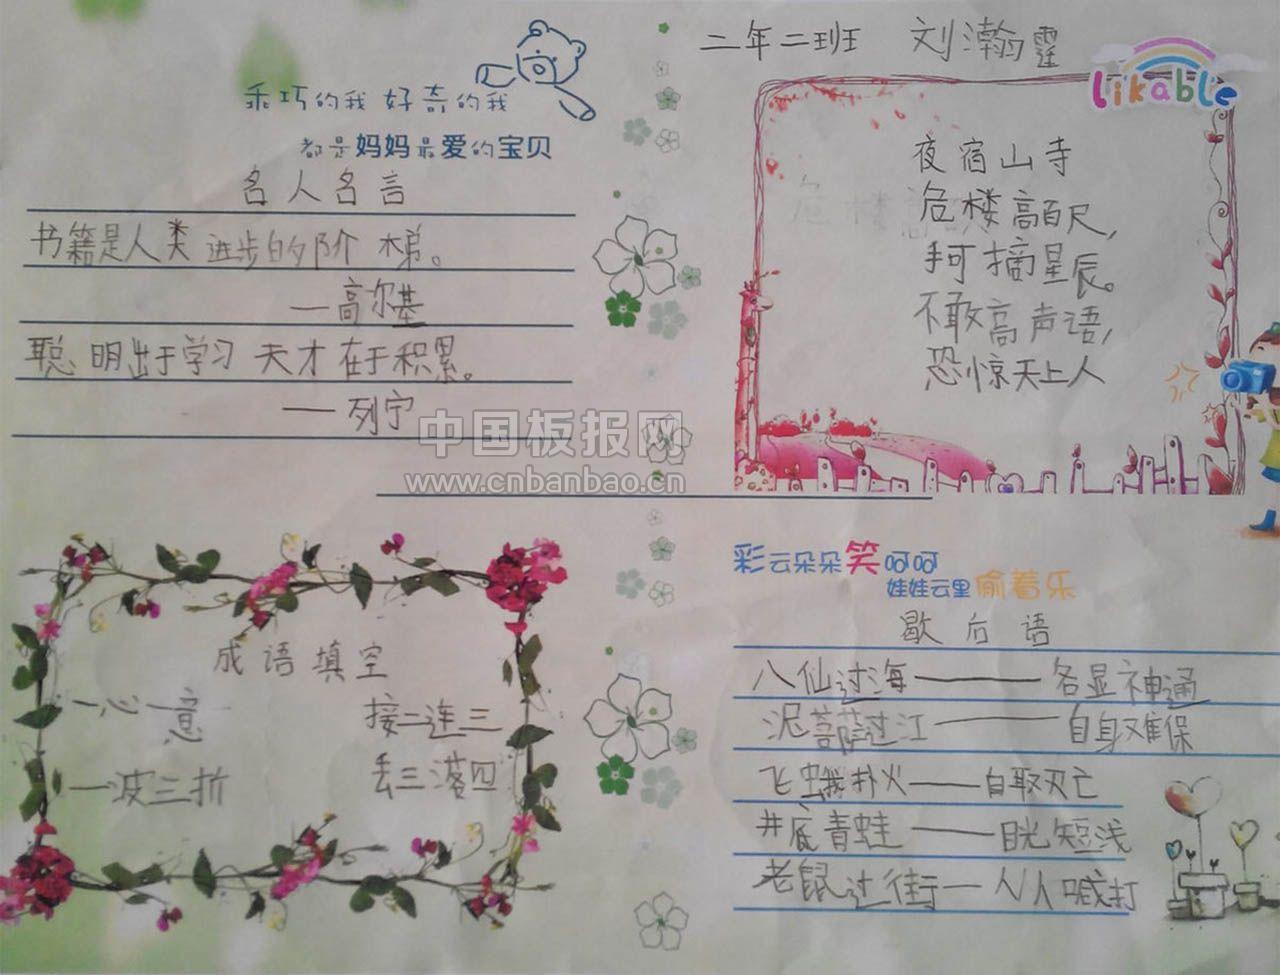 二年二班 刘瀚霆
likable
乖巧的我 好奇的我
都是妈妈最爱的宝贝
名人名言
书籍是人类进步的阶梯。
—高尔基
聪明出于学习 天才在于积累。
—列宁
中国板报网
www.cnbanbao.cn
夜宿山寺
危楼高百尺,
手可摘星辰。
不敢高声语,
恐惊天上人
成语填空
一心一意 接二连三
一波三折 丢三落四
彩云朵朵笑呵呵
娃娃云里偷着乐
歇后语
八仙过海——各显神通
泥菩萨过江——自身难保
飞蛾扑火——自取灭亡
井底青蛙——目光短浅
老鼠过街—人人喊打